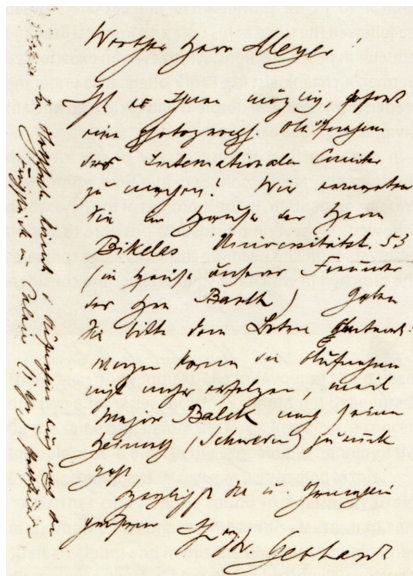 Werther Herr Meyer!
Ist es Ihnen möglich, sofort
eine photograph. Aufnahme
des Internationalen Comités
zu machen? Wir erwarten
Sie im Hause des Herrn
Bikelas Universitätst. 53
(im Hause unserer Freundes
des Hrn Barth) Geben
Sie bitte dem Boten Antwort.
Morgen kann die Aufnahme
nicht mehr erfolgen, weil
Major Balck nach seiner
Heimat (Schwerin) zurück
geht
Herzlichst Sie u. Gemahlin
grüssen Ihr Gebhardt